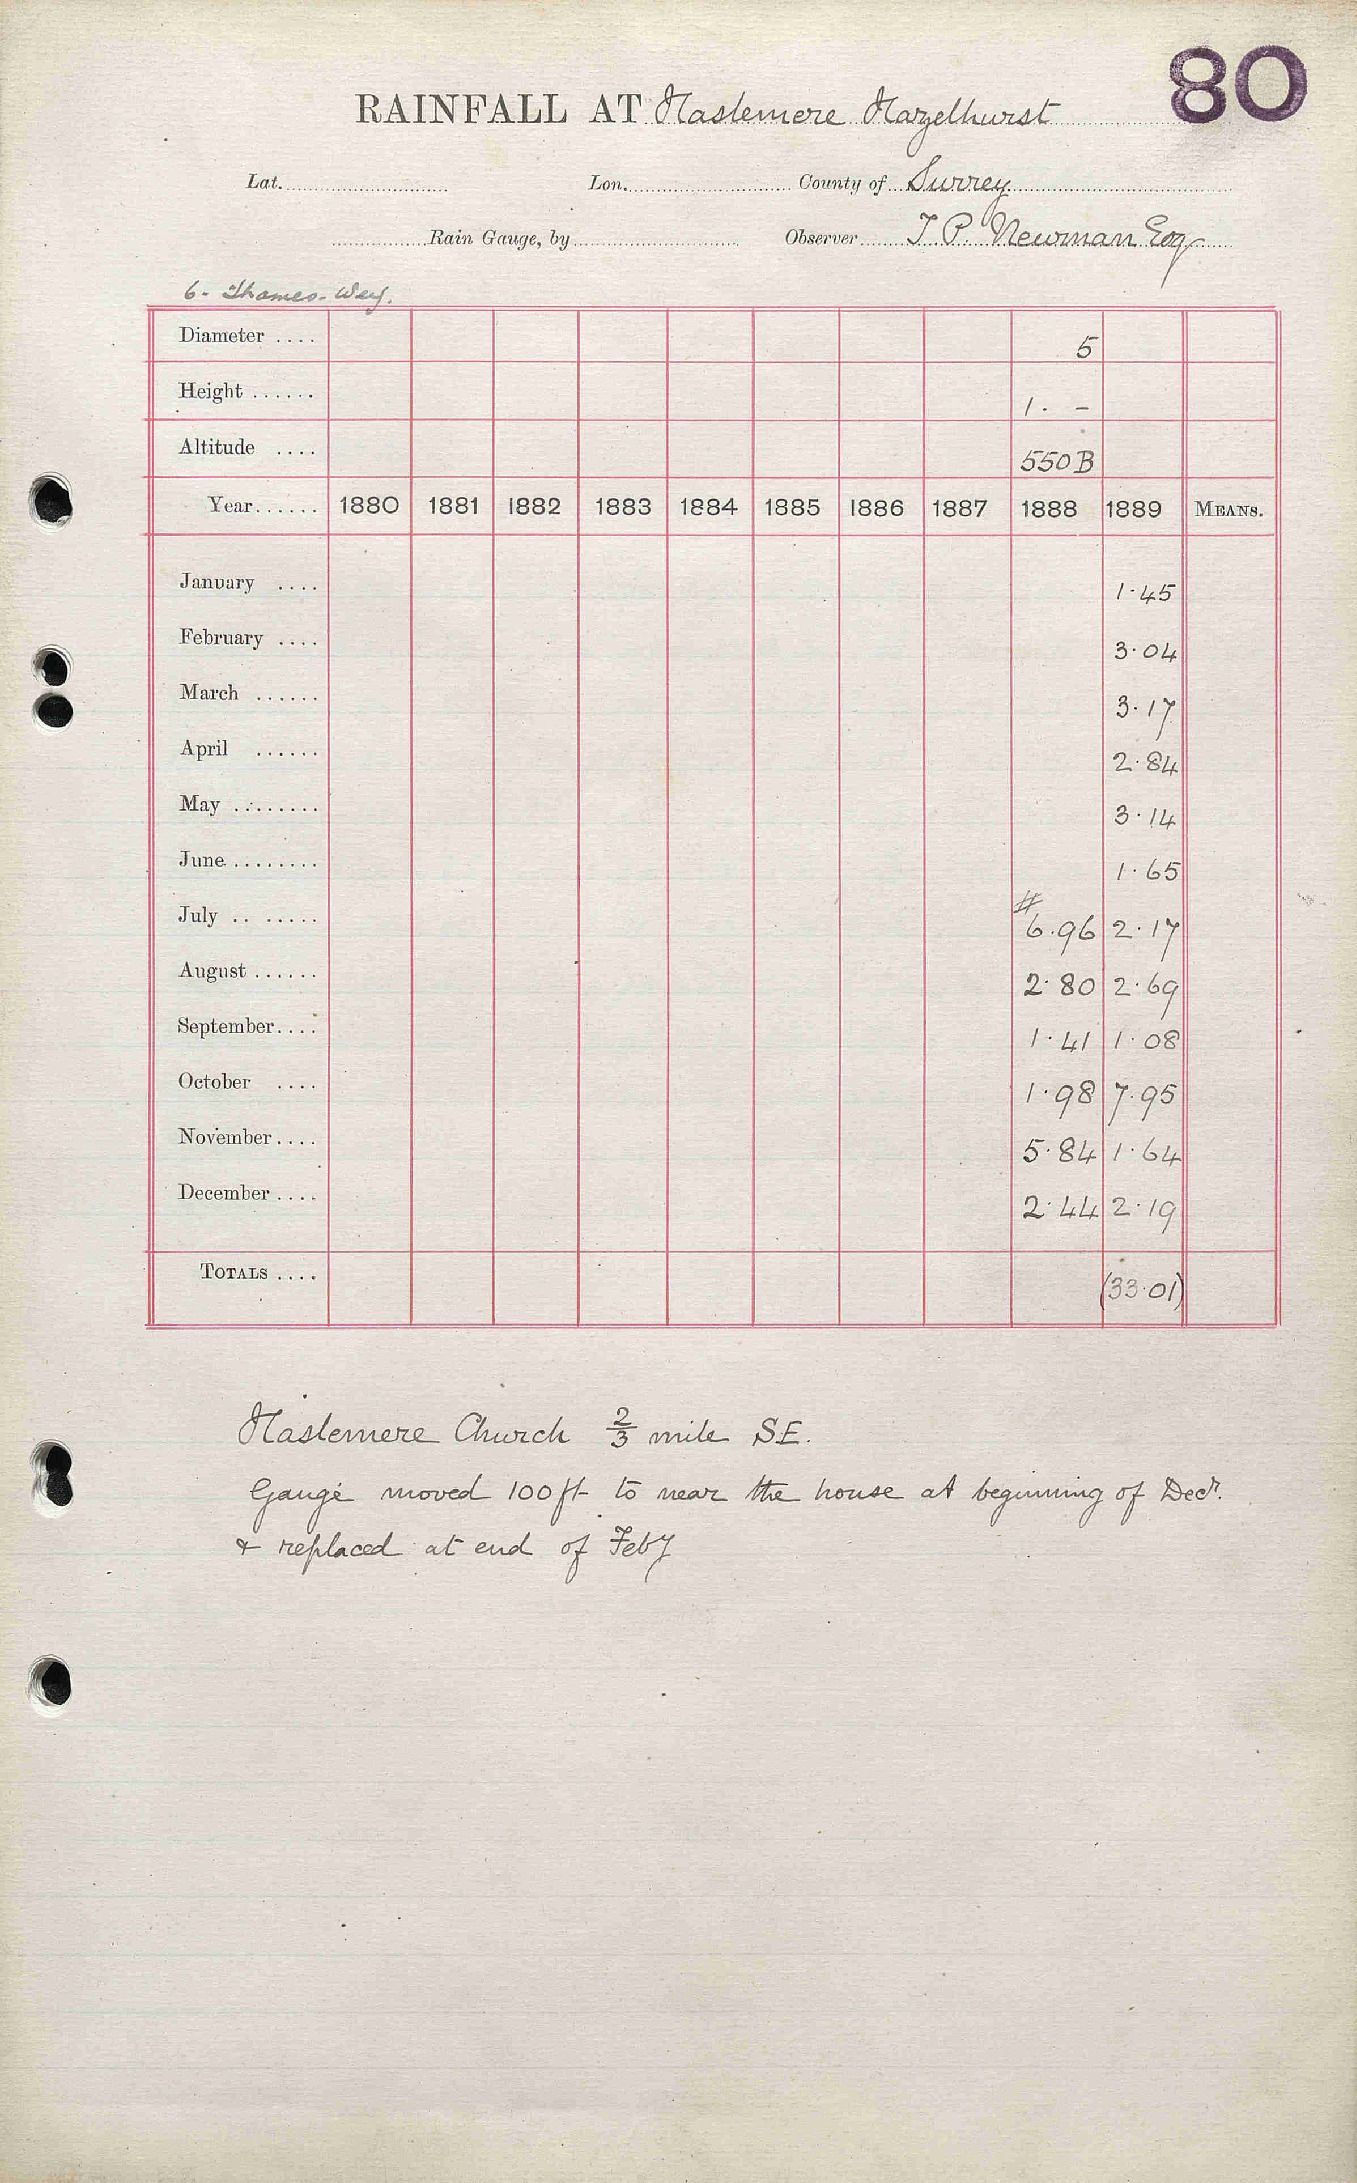 80
RAINFALL AT Haslemere Hazelhurst
Lat. Lon. County of Surrey
Rain Gauge, by Observer T P. Newman Esq
6- Thames-Wey.
Diameter .... 5
Height ...... 1. -
Altitude .... 550B
Year...... 1880 1881 1882 1883 1884 1885 1886 1887 1888 1889 MEANS.
January .... 1.45
February .... 3.04
March ...... 3.17
April ...... 2.84
May ........ 3.14
June ........ 1.65
#
July .. ..... 6.96 2.17
August ...... 2.80 2.69
September.... 1.41 1.08
October .... 1.98 7.95
November .... 5.84 1.64
December .... 2.44 2.19
TOTALS .... (33.01)
Haslemere Church 2/3 mile SE.
Gauge moved 100 ft to near the house at beginning of Decr.
& replaced at end of Feby